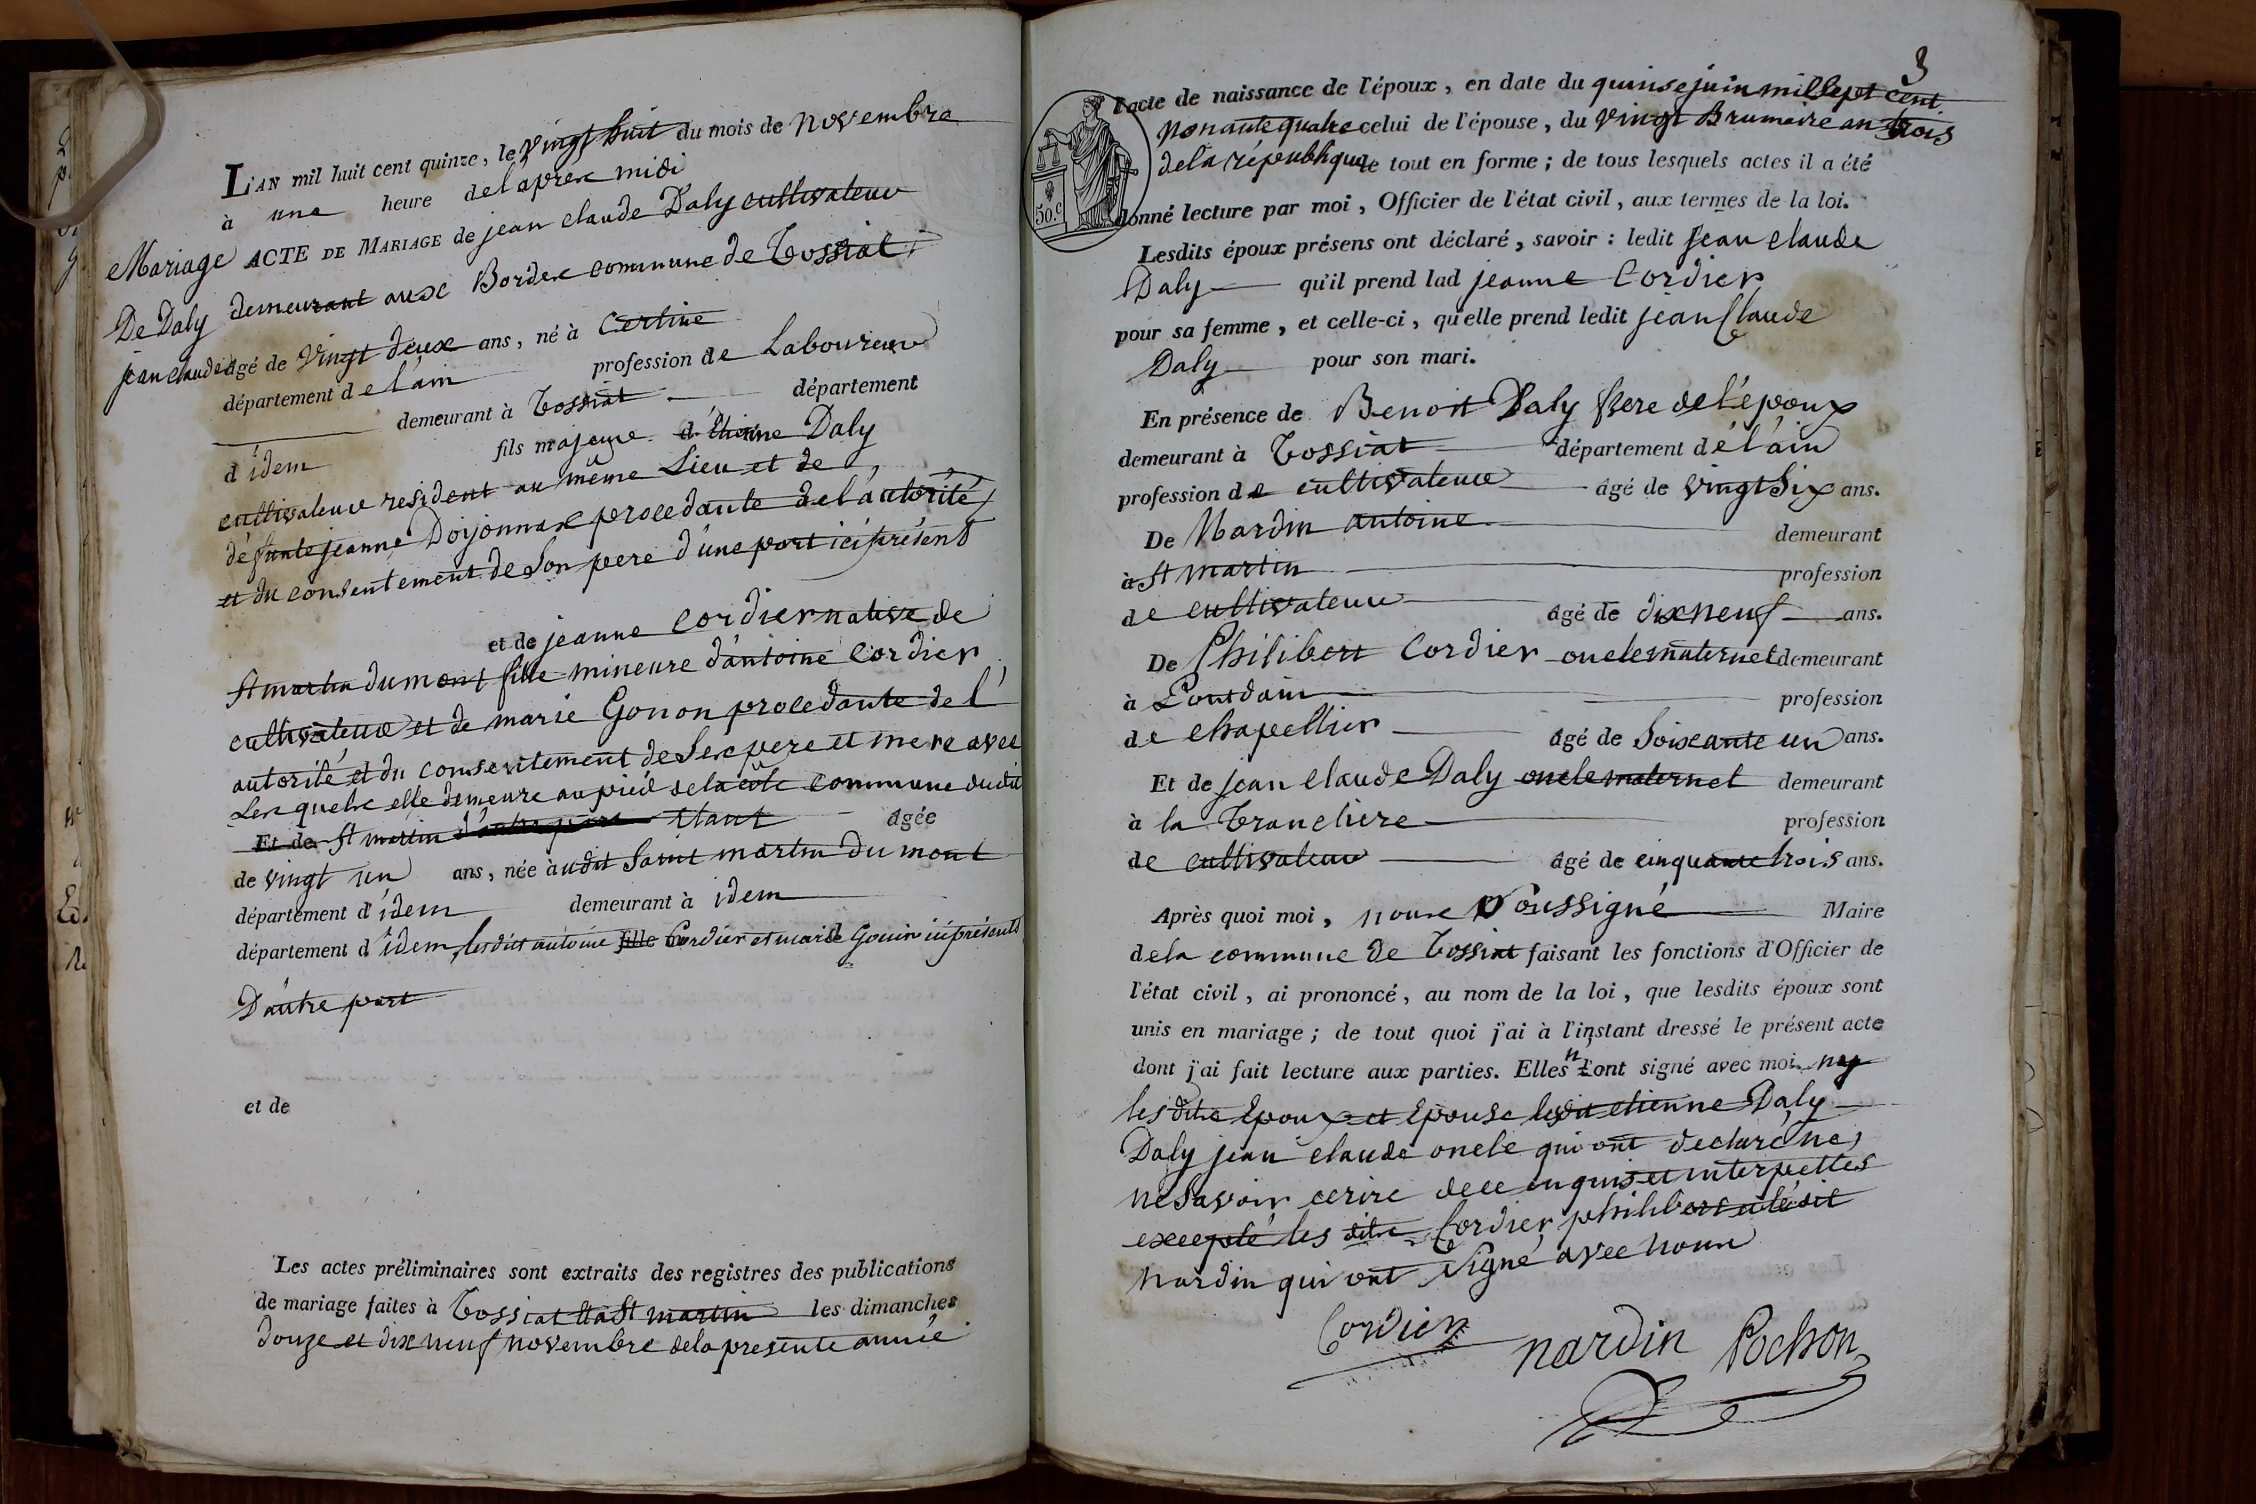 L'AN mil huit cent quinze, le vingt huit du mois de novembre
à une heure de lapres midi
Mariage ACTE DE MARIAGE de jean claude Daly cultivateur
De Daly demeurant aux Bordes commune de Tossiat
jean claude âgé de vingt deux ans, né à Certine
département de l'ain profession de Laboureur
demeurant à Tossiat département
d'idem fils majeur d'Etienne Daly
cultivateur resident au même Lieu et de
défunte jeanne Doijonnax procedante de l'autorité
et du consentement de Son pere d'une part ici présent
et de jeanne Cordier native de
st martin du mont fille mineure d'antoine Cordier
cultivateur et de marie Gonon procedante de l'
autorité et du consentement de Ses pere et mere avec
Les quels elle demeure au pied de la côte commune dudit
Et de St martin d'autre part etant âgée
de vingt un ans, née àudit Saint martin du mont
département d'idem demeurant à idem
département d'idem lesdits antoine fille Cordier et marie Gonin ici présents
D'autre part
et de
Les actes préliminaires sont extraits des registres des publications
de mariage faites à Tossiat et a St martin les dimanches
douze et dix neuf novembre de la presente année
3
l'acte de naissance de l'époux, en date du quinse juin mil sept cent
nonante quatre celui de l'épouse, du vingt Brumaire an trois
de la république le tout en forme; de tous lesquels actes il a été
50.c donné lecture par moi, Officier de l'état civil, aux termes de la loi.
Lesdits époux présens ont déclaré, savoir: ledit Jean claude
Daly qu'il prend lad jeanne Cordier
pour sa femme, et celle-ci, qu'elle prend ledit jean Claude
Daly pour son mari.
En présence de Benoit Daly frere de l'époux
demeurant à Tossiat département de l'ain
profession de cultivateur âgé de vingt Six ans.
De Nardin antoine demeurant
à St martin profession
de cultivateur âgé de dix neuf ans.
De Philibert Cordier oncle maternel demeurant
à Pontdain profession
de chapellier âgé de Soixante un ans.
Et de jean claude Daly oncle maternel demeurant
à la Trancliere profession
de cultivateur âgé de cinquante trois ans.
Après quoi moi, nous Soussigné Maire
de la commune de Tossiat faisant les fonctions d'Officier de
l'état civil, ai prononcé, au nom de la loi, que lesdits époux sont
unis en mariage; de tout quoi j'ai à l'instant dressé le présent acte
dont j'ai fait lecture aux parties. Elles n'ont signé avec moi ny
les dits Epoux et Epouse ledit etienne Daly
Daly jean claude oncle qui ont declaré ne
ne Savoir ecrire de ce enquis et interpellés
excepté les dits Cordier philibert et ledit
nardin qui ont Signé avec nous
Cordier nardin Pochon